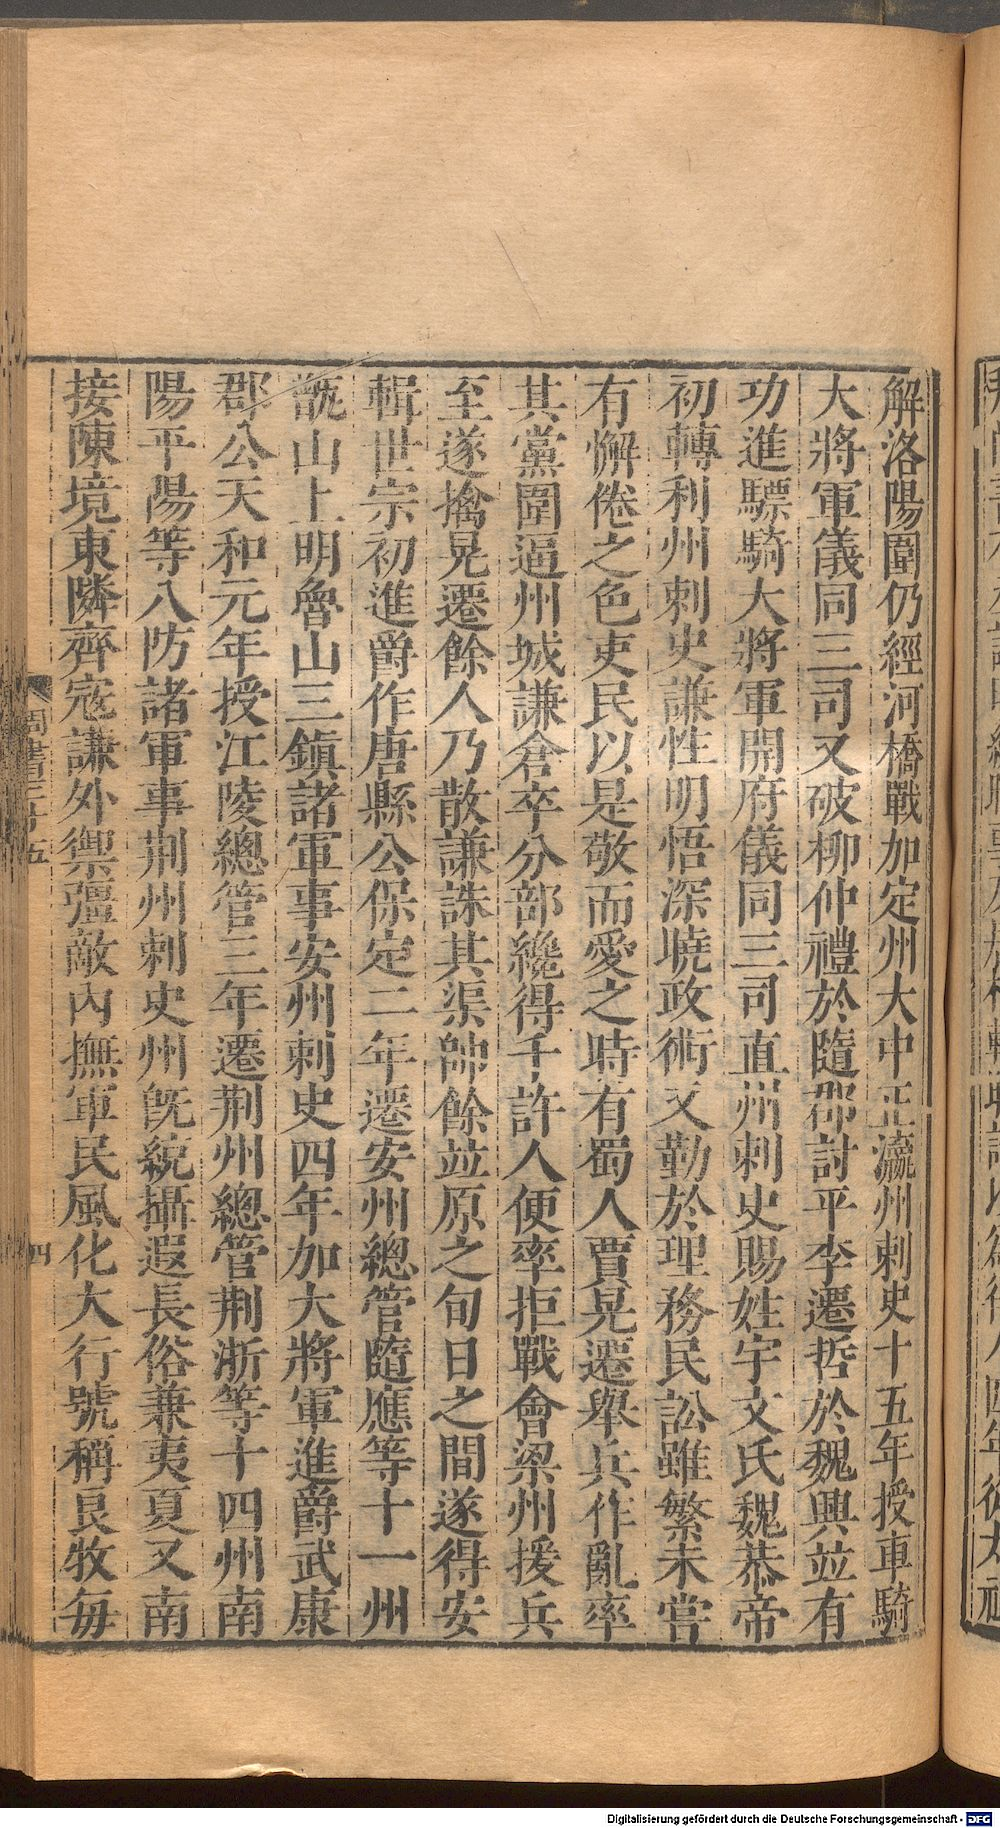 解洛陽圍仍經河橋戰加定州大中正瀛州刺史十五年授車騎
大將軍儀同三司又破柳仲禮於隨郡討平李遷哲於魏興並有
功進驃騎大將軍開府儀同三司直州刺史賜姓宇文氏魏恭帝
初轉利州刺史謙性明悟深曉政術又勤於理務民訟雖繁未嘗
有懈倦之色吏民以是敬而愛之時有蜀人賈晃遷舉兵作亂率
其黨圍逼州城謙倉卒分部纔得千許人便率拒戰會梁州援兵
至遂擒晃遷餘人乃散謙誅其渠帥餘並原之旬日之間遂得安
輯世宗初進爵作唐縣公保定二年遷安州總管隨應等十一州
甑山上明魯山三鎮諸軍事安州刺史四年加大將軍進爵武康
郡公天和元年授江陵總管三年遷荆州總管荆淅等十四州南
陽平陽等八防諸軍事荆州刺史州旣統攝遐長俗兼夷夏又南
接陳境東隣齊寇謙外禦彊敵內撫軍民風化大行號稱良牧每
周書三十五
四
Digitalisierung gefördert durch die Deutsche Forschungsgemeinschaft - DFG